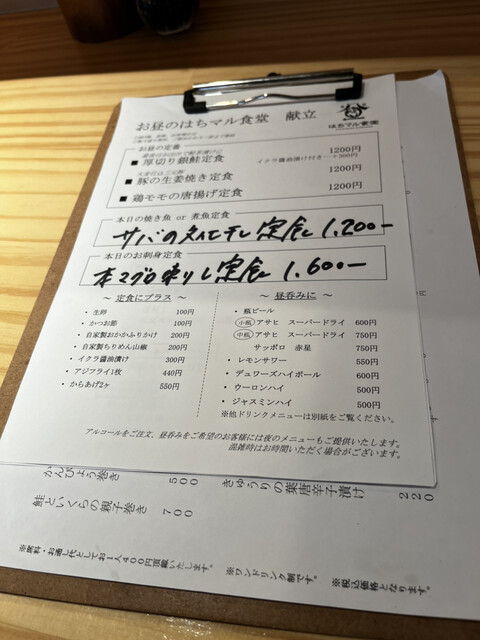 お昼のはちマル食堂　献立
はちマル食堂
お昼の定番
■ 厚切り銀鮭定食 1200円
イクラ醤油漬け付き…+300円
■ 豚の生姜焼き定食 1200円
■ 鶏モモの唐揚げ定食 1200円
本日の焼き魚 or 煮魚定食
サバの文化干し定食 1,200-
本日のお刺身定食
本マグロ刺し定食 1,600-
～ 定食にプラス ～
・ 生卵 100円
・ かつお節 100円
・ 自家製おかかふりかけ 200円
・ 自家製ちりめん山椒 200円
・ イクラ醤油漬け 300円
・ アジフライ1枚 440円
・ からあげ2ヶ 550円
～ 昼呑みに ～
・ 瓶ビール
小瓶 アサヒ　スーパードライ 600円
中瓶 アサヒ　スーパードライ 750円
サッポロ　赤星 750円
・ レモンサワー 550円
・ デュワーズハイボール 600円
・ ウーロンハイ 500円
・ ジャスミンハイ 500円
※他ドリンクメニューは別紙をご覧ください。
アルコールをご注文、昼呑みをご希望のお客様には夜のメニューもご提供いたします。
混雑時はお時間いただく場合がございます。
かんぴょう巻き 500
きゅうりの葉唐辛子漬け 220
鮭といくらの親子巻き 700
※席料・お通し代としてお1人400円頂戴いたします。
※ワンドリンク制です。
※税込価格となります。